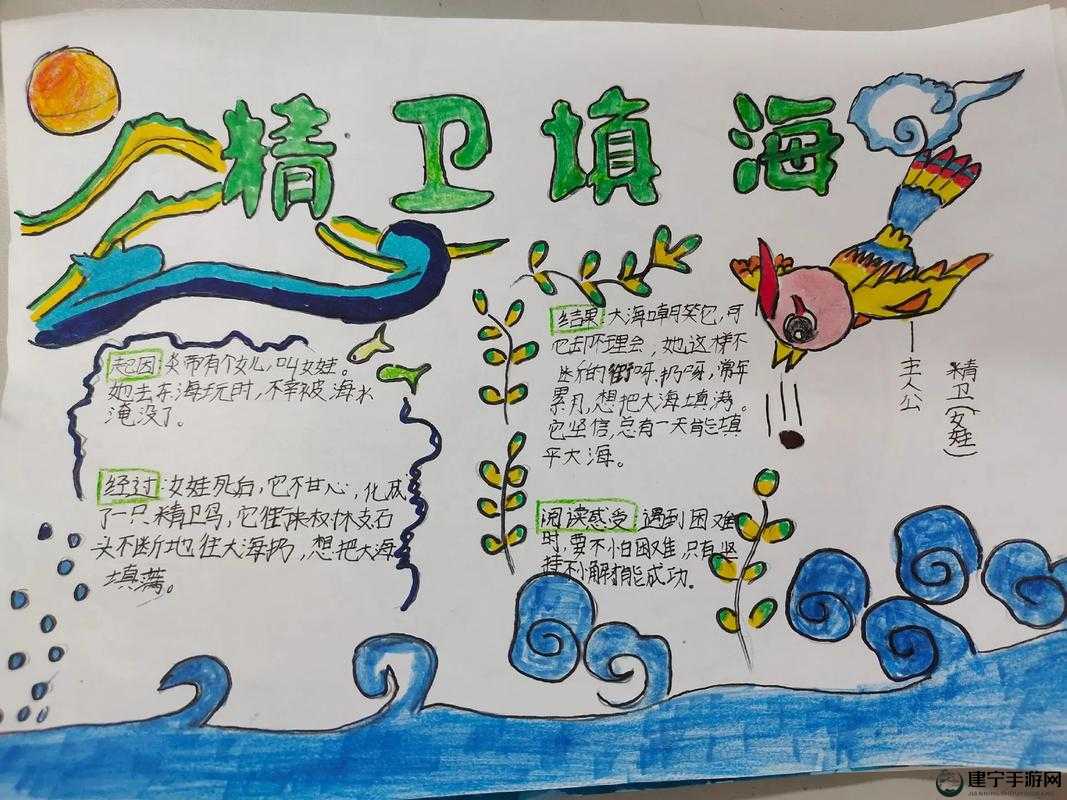 精卫填海
起因:炎帝有个女儿,叫女娃。
她去东海玩时,不幸被海水
淹没了。
经过:女娃死后,它不甘心,化成
了一只精卫鸟,它衔来树枝石
头不断地往大海扔,想把大海
填满。
结果:大海嘲笑它,可
它却不理会,她这样不
断的衔呀,扔呀,常年
累月,想把大海填满。
它坚信,总有一天能填
平大海。
阅读感受:遇到困难
时,要不怕困难,只有坚
持不懈才能成功。
主人公
精卫(女娃)
建宁手游网